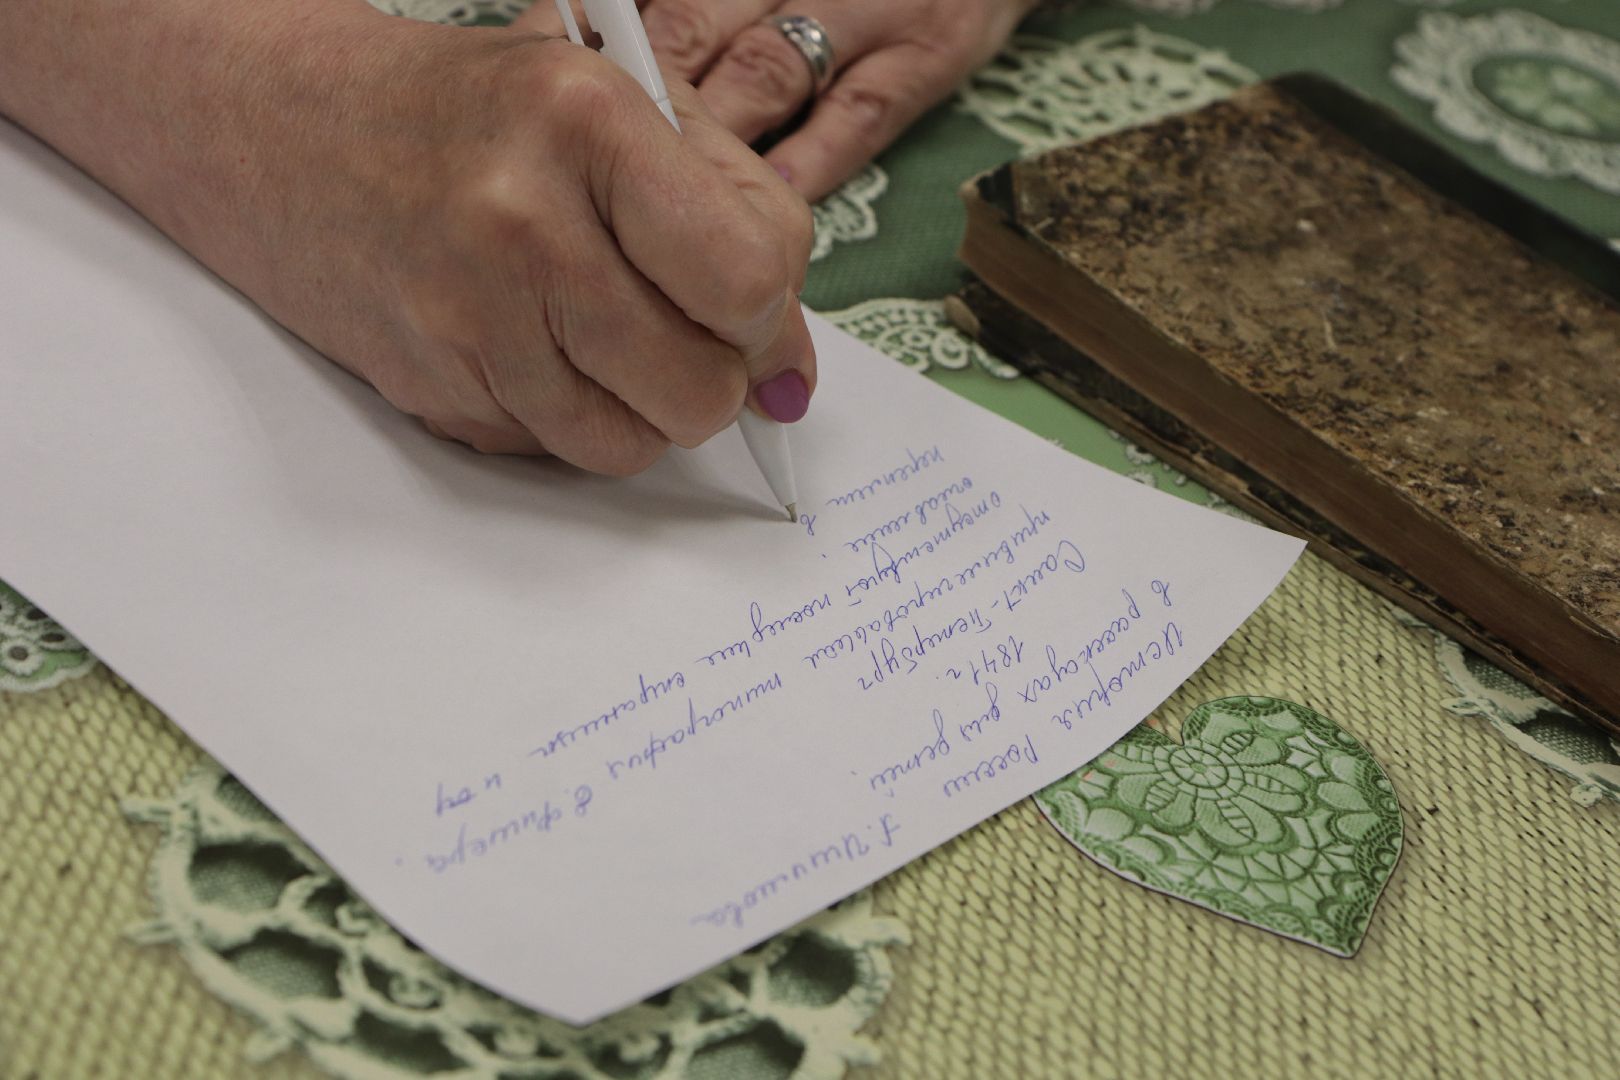 А. Ишимова
История России
в рассказах для детей.
1841 г.
Санкт-Петербург
привилегированная типография Е. Фишера.
отсутствуют последние страницы и
оглавление.
переплет в